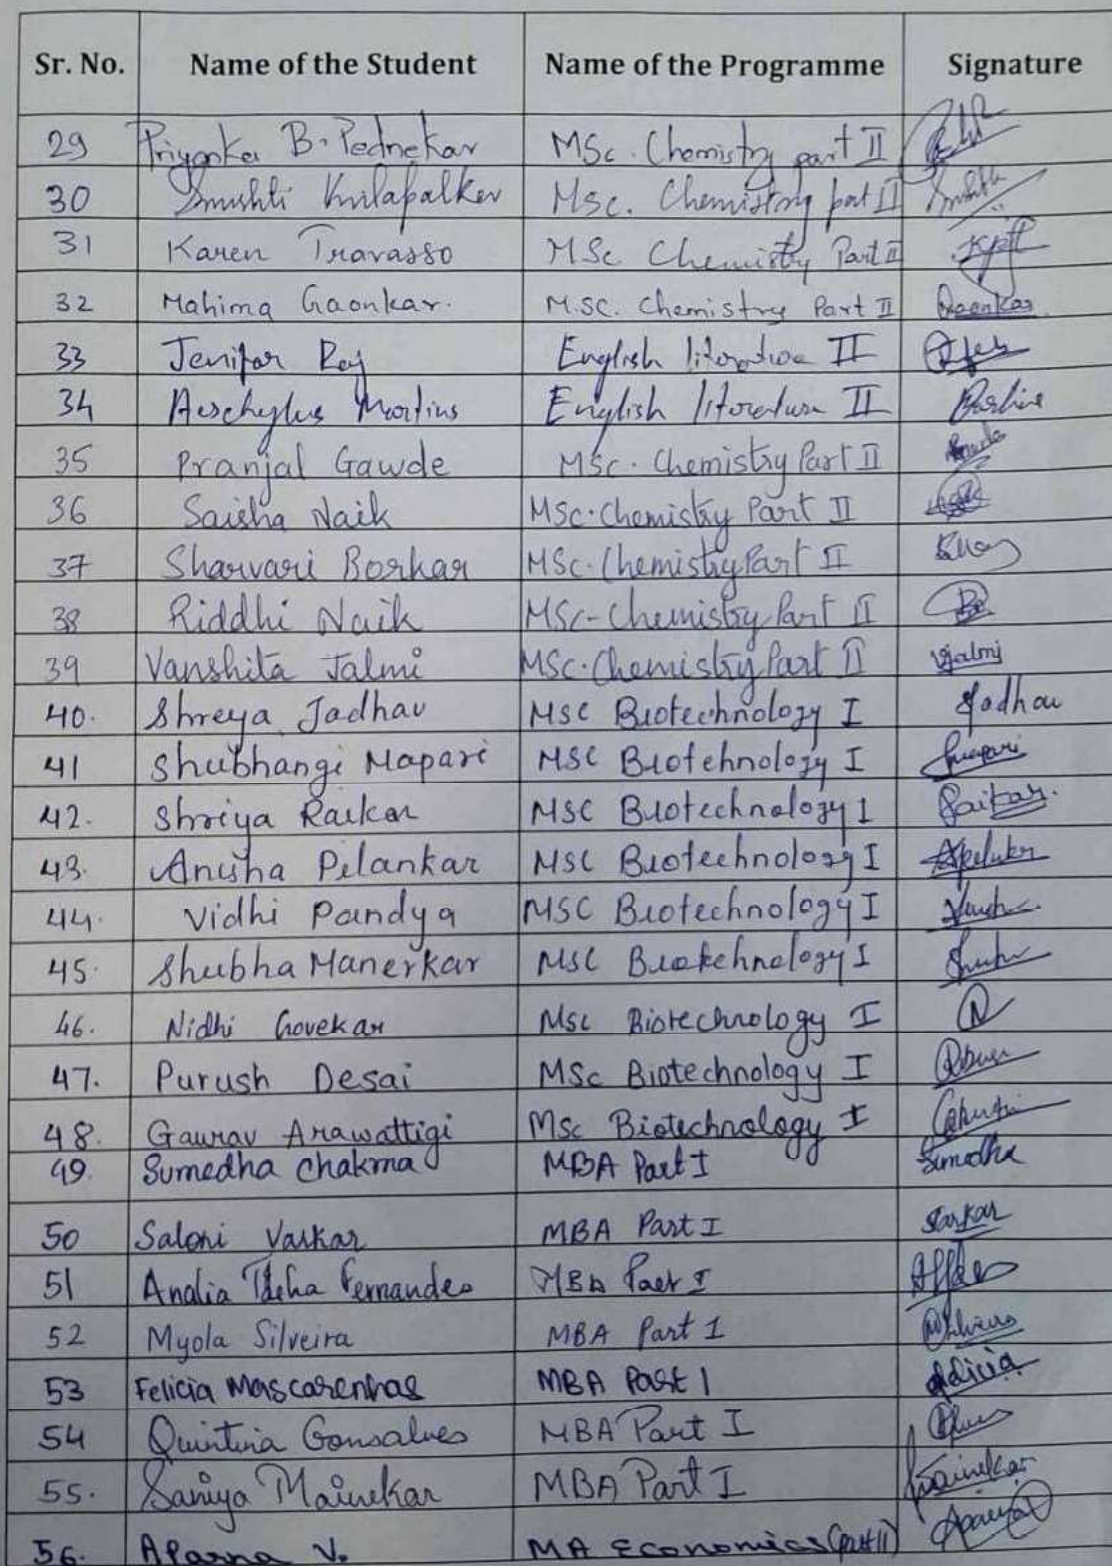 Sr. No. Name of the Student Name of the Programme Signature
29 Priyanka B. Pednekar MSc. Chemistry part II
30 MSc. Chemistry part II
31 Karen Travasso MSc Chemistry Part II
32 Mahima Gaonkar. M.SC. Chemistry Part II Gaonkar
33 Jenifar Raj English literature II
34 Aeschylus Martins English literature II Martins
35 Pranjal Gawde MSc. Chemistry Part II
36 Saisha Naik MSc. Chemistry Part II
37 Sharvari Borkar MSc. Chemistry Part II
38 Riddhi Naik MSc-Chemistry Part II
39 Vanshita Jalmi MSc. Chemistry Part II Vjalmi
40. Shreya Jadhav MSC Biotechnology I Jadhav
41 Shubhangi Mapari MSC Biotehnology I
42. Shriya Raikar MSC Biotechnology I Raikar.
43. Anisha Pilankar MSC Biotechnology I
44. Vidhi Pandya MSC Biotechnology I
45. Shubha Manerkar MSC Biotechnology I
46. Nidhi Govekar MSc Biotechnology I
47. Purush Desai MSc Biotechnology I
48. Gaurav Arawattigi MSc Biotechnology I
49. Sumedha Chakma MBA Part I Sumedha
50 Saloni Vaikar MBA Part I
51 Analia Fernandes MBA Part I
52 Myola Silveira MBA Part I
53 Felicia Mascarenhas MBA Part I Felicia
54 Quintina Gonsalves MBA Part I
55. Saniya Mainekar MBA Part I Mainekar
56. Aparna V. MA Economics (part II)